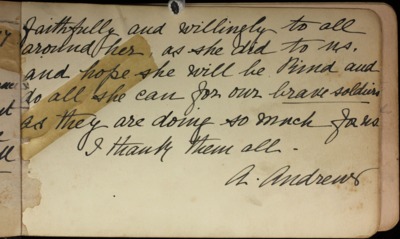 faithfully and willingly to all
around her as she did to us.
and hope she will be kind and
do all she can for our brave soldiers
as they are doing so much for us
I thank them all.
A. Andrews